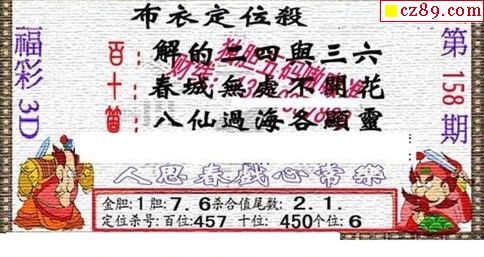 cz89.com
布衣定位殺
福彩3D
第158期
百: 解的二四與三六
十: 春城無處不開花
個: 八仙過海各顯靈
人思春戲心常樂
金胆:1胆:7.6杀合值尾数:2.1.
定位杀号:百位:457 十位:450个位:6